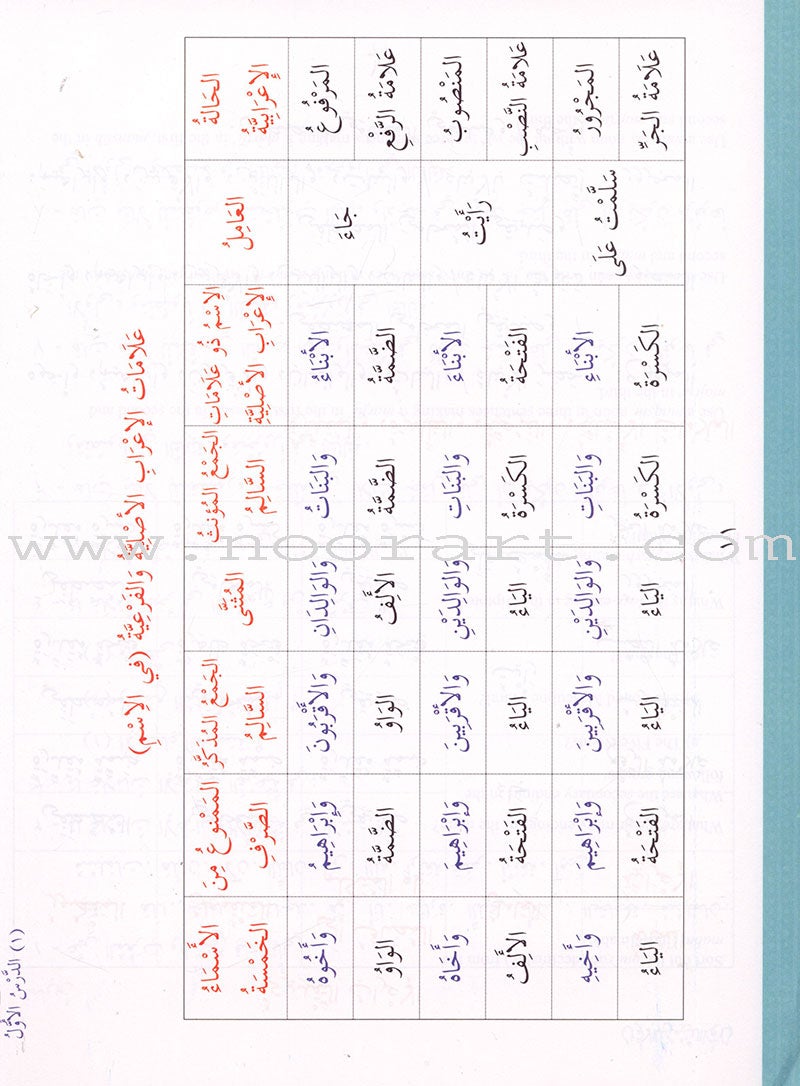 (١) الدَّرْسُ الأَوَّلُ
عَلَامَاتُ الإِعْرَابِ الأَصْلِيَّةُ وَالفَرْعِيَّةُ (فِي الاِسْمِ)
الحَالَةُ الإِعْرَابِيَّةُ العَامِلُ الاِسْمُ ذُو عَلَامَات الإِعْرَابِ الأَصْلِيَّةِ الجَمْعُ المُؤَنَّثُ السَّالِمُ المُثَنَّى الجَمْعُ المُذَكَّرُ السَّالِمُ المَمْنُوعُ مِنَ الصَّرْفِ الأَسْمَاءُ الخَمْسَةُ
المَرْفُوعُ جَاءَ الأَبْنَاءُ وَالبَنَاتُ وَالوَالِدَانِ وَالأَقْرَبُونَ وَإِبْرَاهِيمُ وَأَخُوهُ
عَلَامَةُ الرَّفْعِ الضَّمَّةُ الضَّمَّةُ الأَلِفُ الوَاوُ الضَّمَّةُ الوَاوُ
المَنْصُوبُ رَأَيْتُ الأَبْنَاءَ وَالبَنَاتِ وَالوَالِدَيْنِ وَالأَقْرَبِينَ وَإِبْرَاهِيمَ وَأَخَاهُ
عَلَامَةُ النَّصْبِ الفَتْحَةُ الكَسْرَةُ اليَاءُ اليَاءُ الفَتْحَةُ الأَلِفُ
المَجْرُورُ سَلَّمْتُ عَلَى الأَبْنَاءِ وَالبَنَاتِ وَالوَالِدَيْنِ وَالأَقْرَبِينَ وَإِبْرَاهِيمَ وَأَخِيهِ
عَلَامَةُ الجَرِّ الكَسْرَةُ الكَسْرَةُ اليَاءُ اليَاءُ الفَتْحَةُ اليَاءُ
١١
www.noorart.com